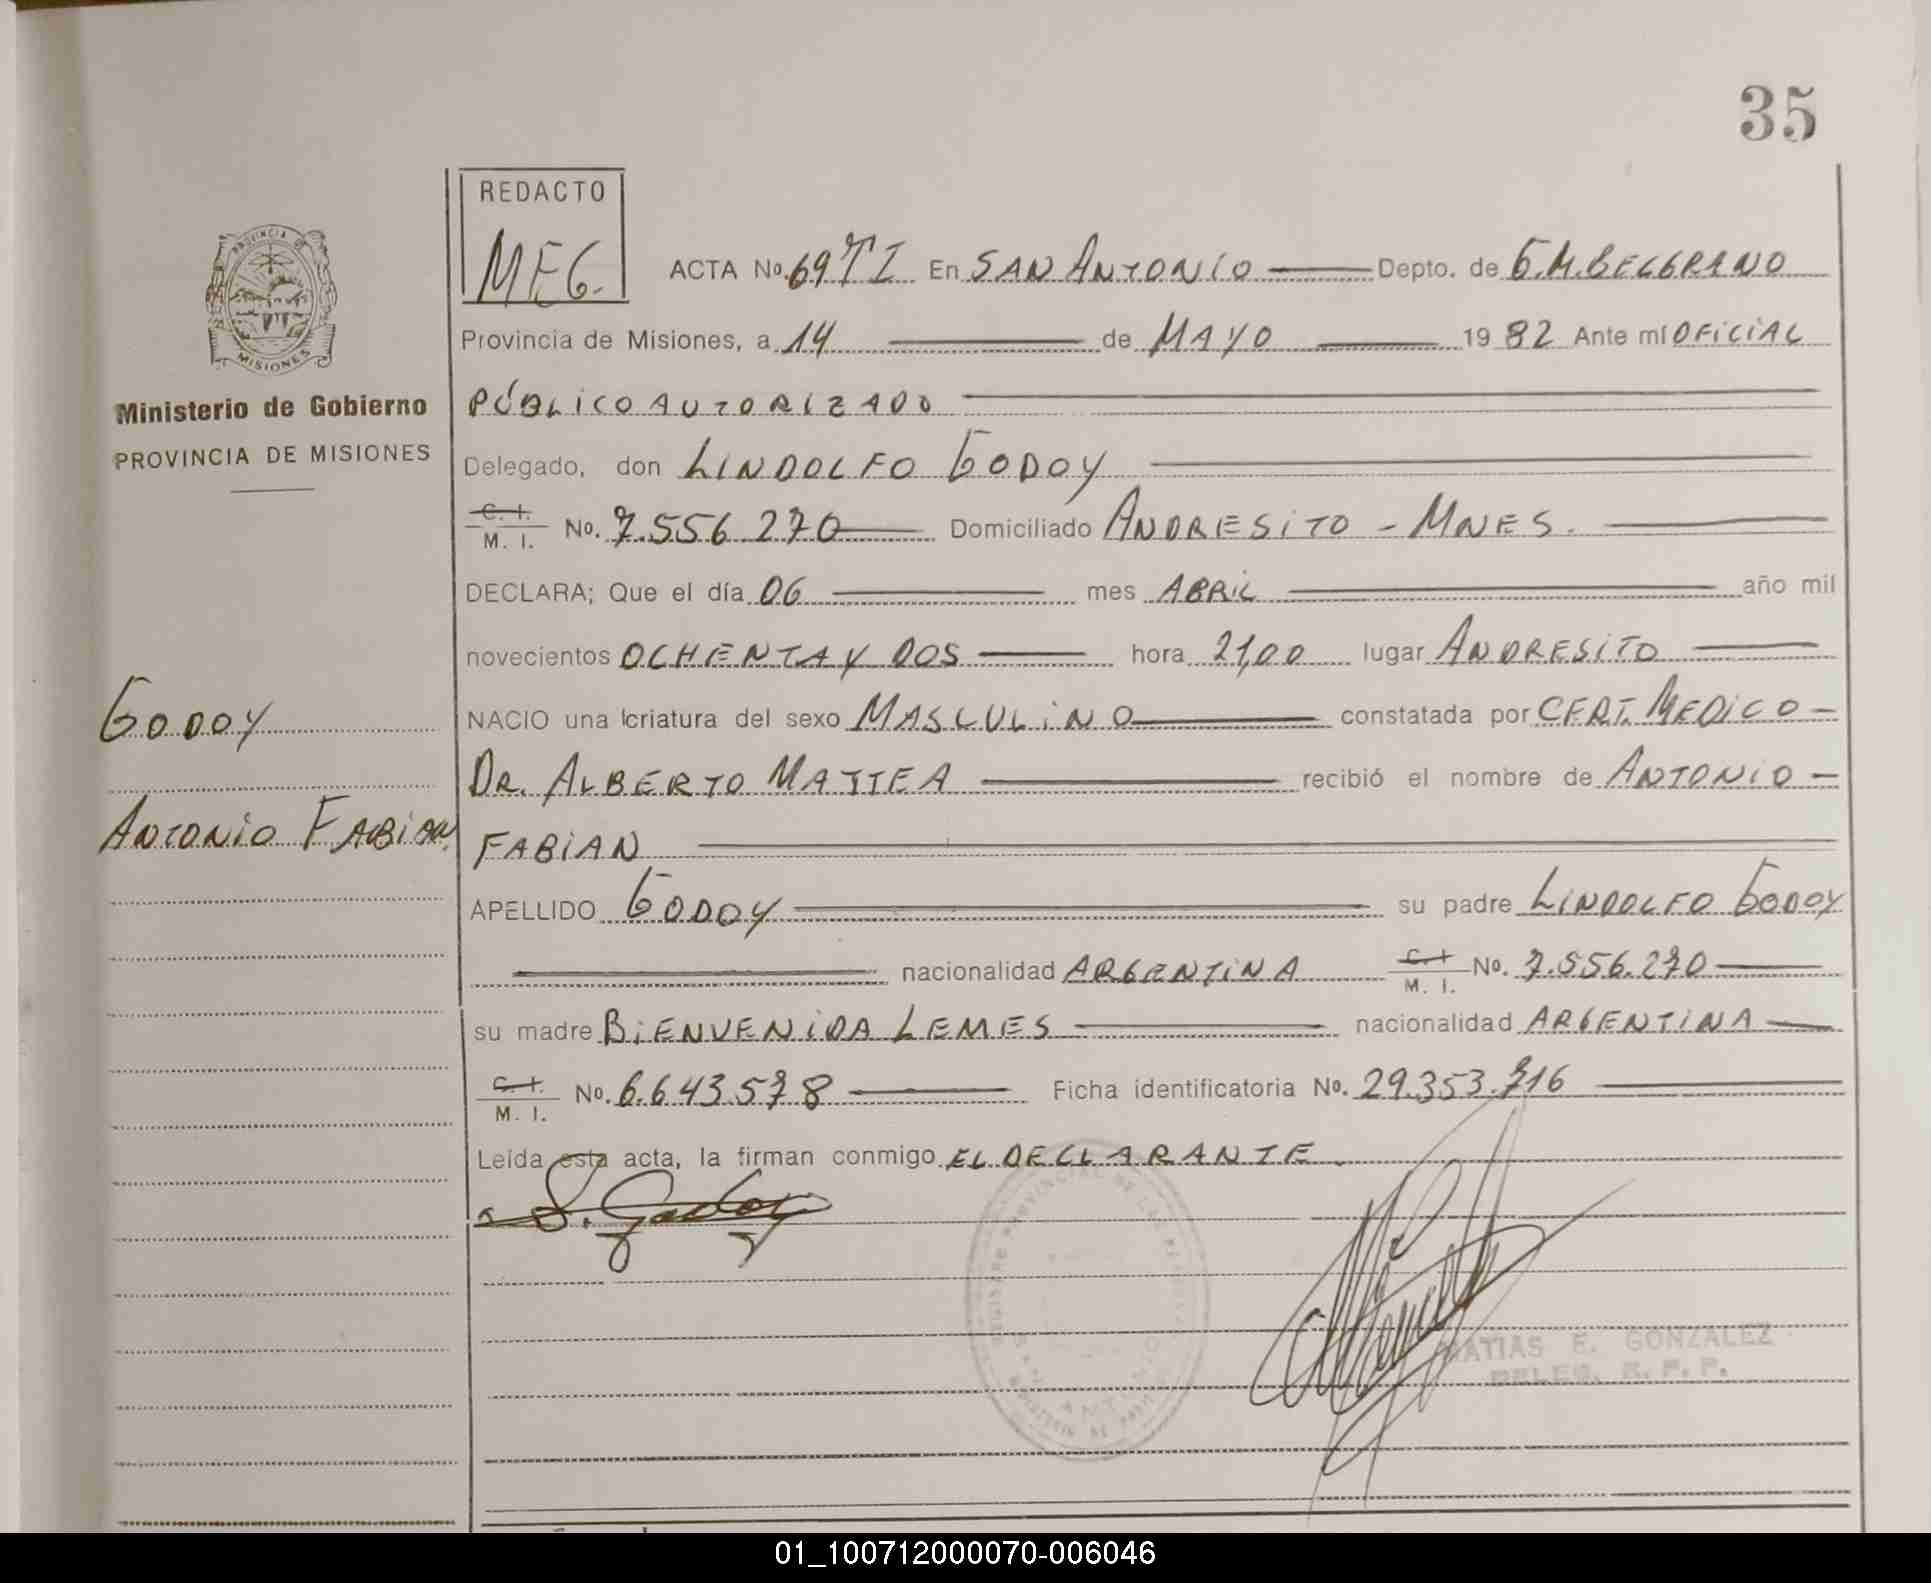 35
REDACTO
MEG.
ACTA No. 69 TI En SAN ANTONIO Depto. de G.M. BELGRANO
Provincia de Misiones, a 14 de MAYO 1982 Ante mí OFICIAL
PÚBLICO AUTORIZADO
Delegado, don LINDOLFO GODOY
C. I.
M. I. No. 7.556.270 Domiciliado ANDRESITO - MNES.
DECLARA; Que el día 06 mes ABRIL año mil
novecientos OCHENTA Y DOS hora 21,00 lugar ANDRESITO
NACIO una criatura del sexo MASCULINO constatada por CERT. MEDICO
DR. ALBERTO MATTEA recibió el nombre de ANTONIO
FABIAN
APELLIDO GODOY su padre LINDOLFO GODOY
nacionalidad ARGENTINA C. I.
M. I. No. 7.556.270
su madre BIENVENIDA LEMES nacionalidad ARGENTINA
C. I.
M. I. No. 6.643.578 Ficha identificatoria No. 29.353.716
Leída esta acta, la firman conmigo EL DECLARANTE.
L. Godoy
MATIAS E. GONZALEZ
DELEG. R. P. P.
PROVINCIA DE
MISIONES
Ministerio de Gobierno
PROVINCIA DE MISIONES
GODOY
ANTONIO FABIAN
REGISTRO PROVINCIAL DE LAS
SAN ANTONIO
01_100712000070-006046